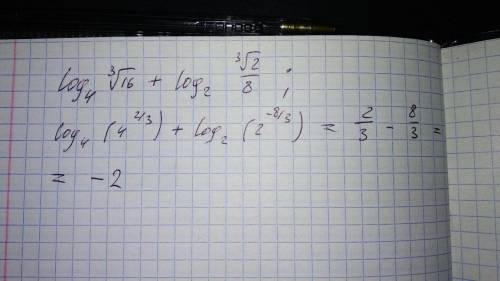 log₄ ∛16 + log₂ ∛2/8 ;
log₄ (4^2/3) + log₂ (2^-8/3) = 2/3 - 8/3 =
= -2